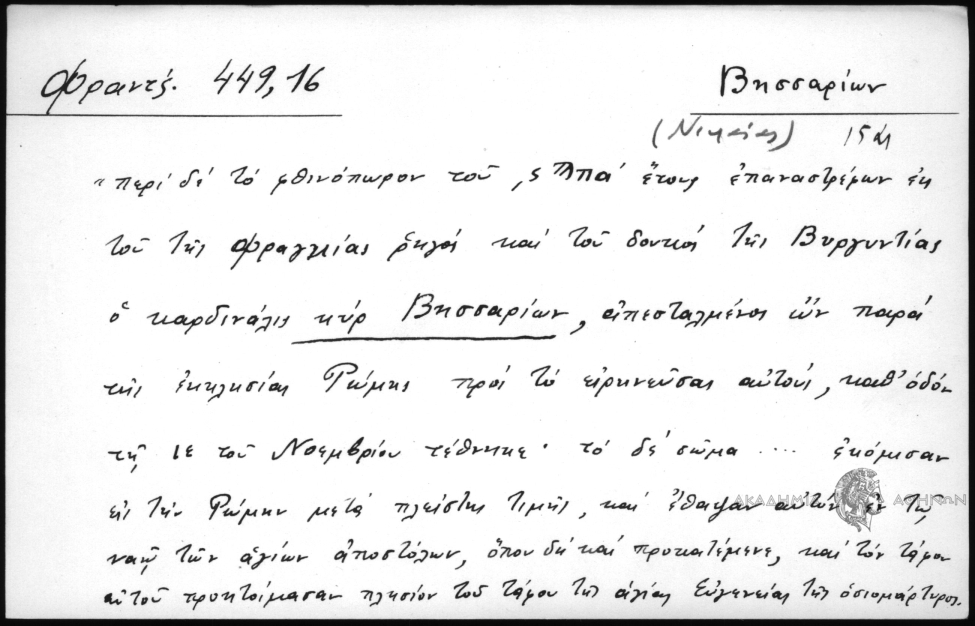 Φραντζ. 449,16
Βησσαρίων
(Νικαίας)
"περί δέ τό φθινόπωρον τοῦ ,ϛ Ϡπα' ἔτους ἐπαναστρέφων ἐκ
τοῦ τῆς Φραγγίας ρηγός καί τοῦ δουκός τῆς Βυργυντίας
ὁ καρδινάλις κύρ Βησσαρίων, ἀπεσταλμένος ὤν παρά
τῆς ἐκκλησίας Ρώμης πρός τό εἰρηνεῦσαι αὐτούς, καθ' ὁδόν
τῇ ιε τοῦ Νοεμβρίου τέθνηκε· τό δέ σῶμα .... ἐκόμισαν
εἰς τήν Ρώμην μετά πλείστης τιμῆς, καί ἔθαψαν αὐτόν ἐν τῷ
ναῷ τῶν ἁγίων ἀποστόλων, ὅπου δή καί προκατέμενε, καί τόν τάφον
αὐτοῦ προητοίμασαν πλησίον τοῦ τάφου τῆς ἁγίας Εὐγενείας τῆς ὁσιομάρτυρος.
ΑΚΑΔΗΜΙΑ ΑΘΗΝΩΝ